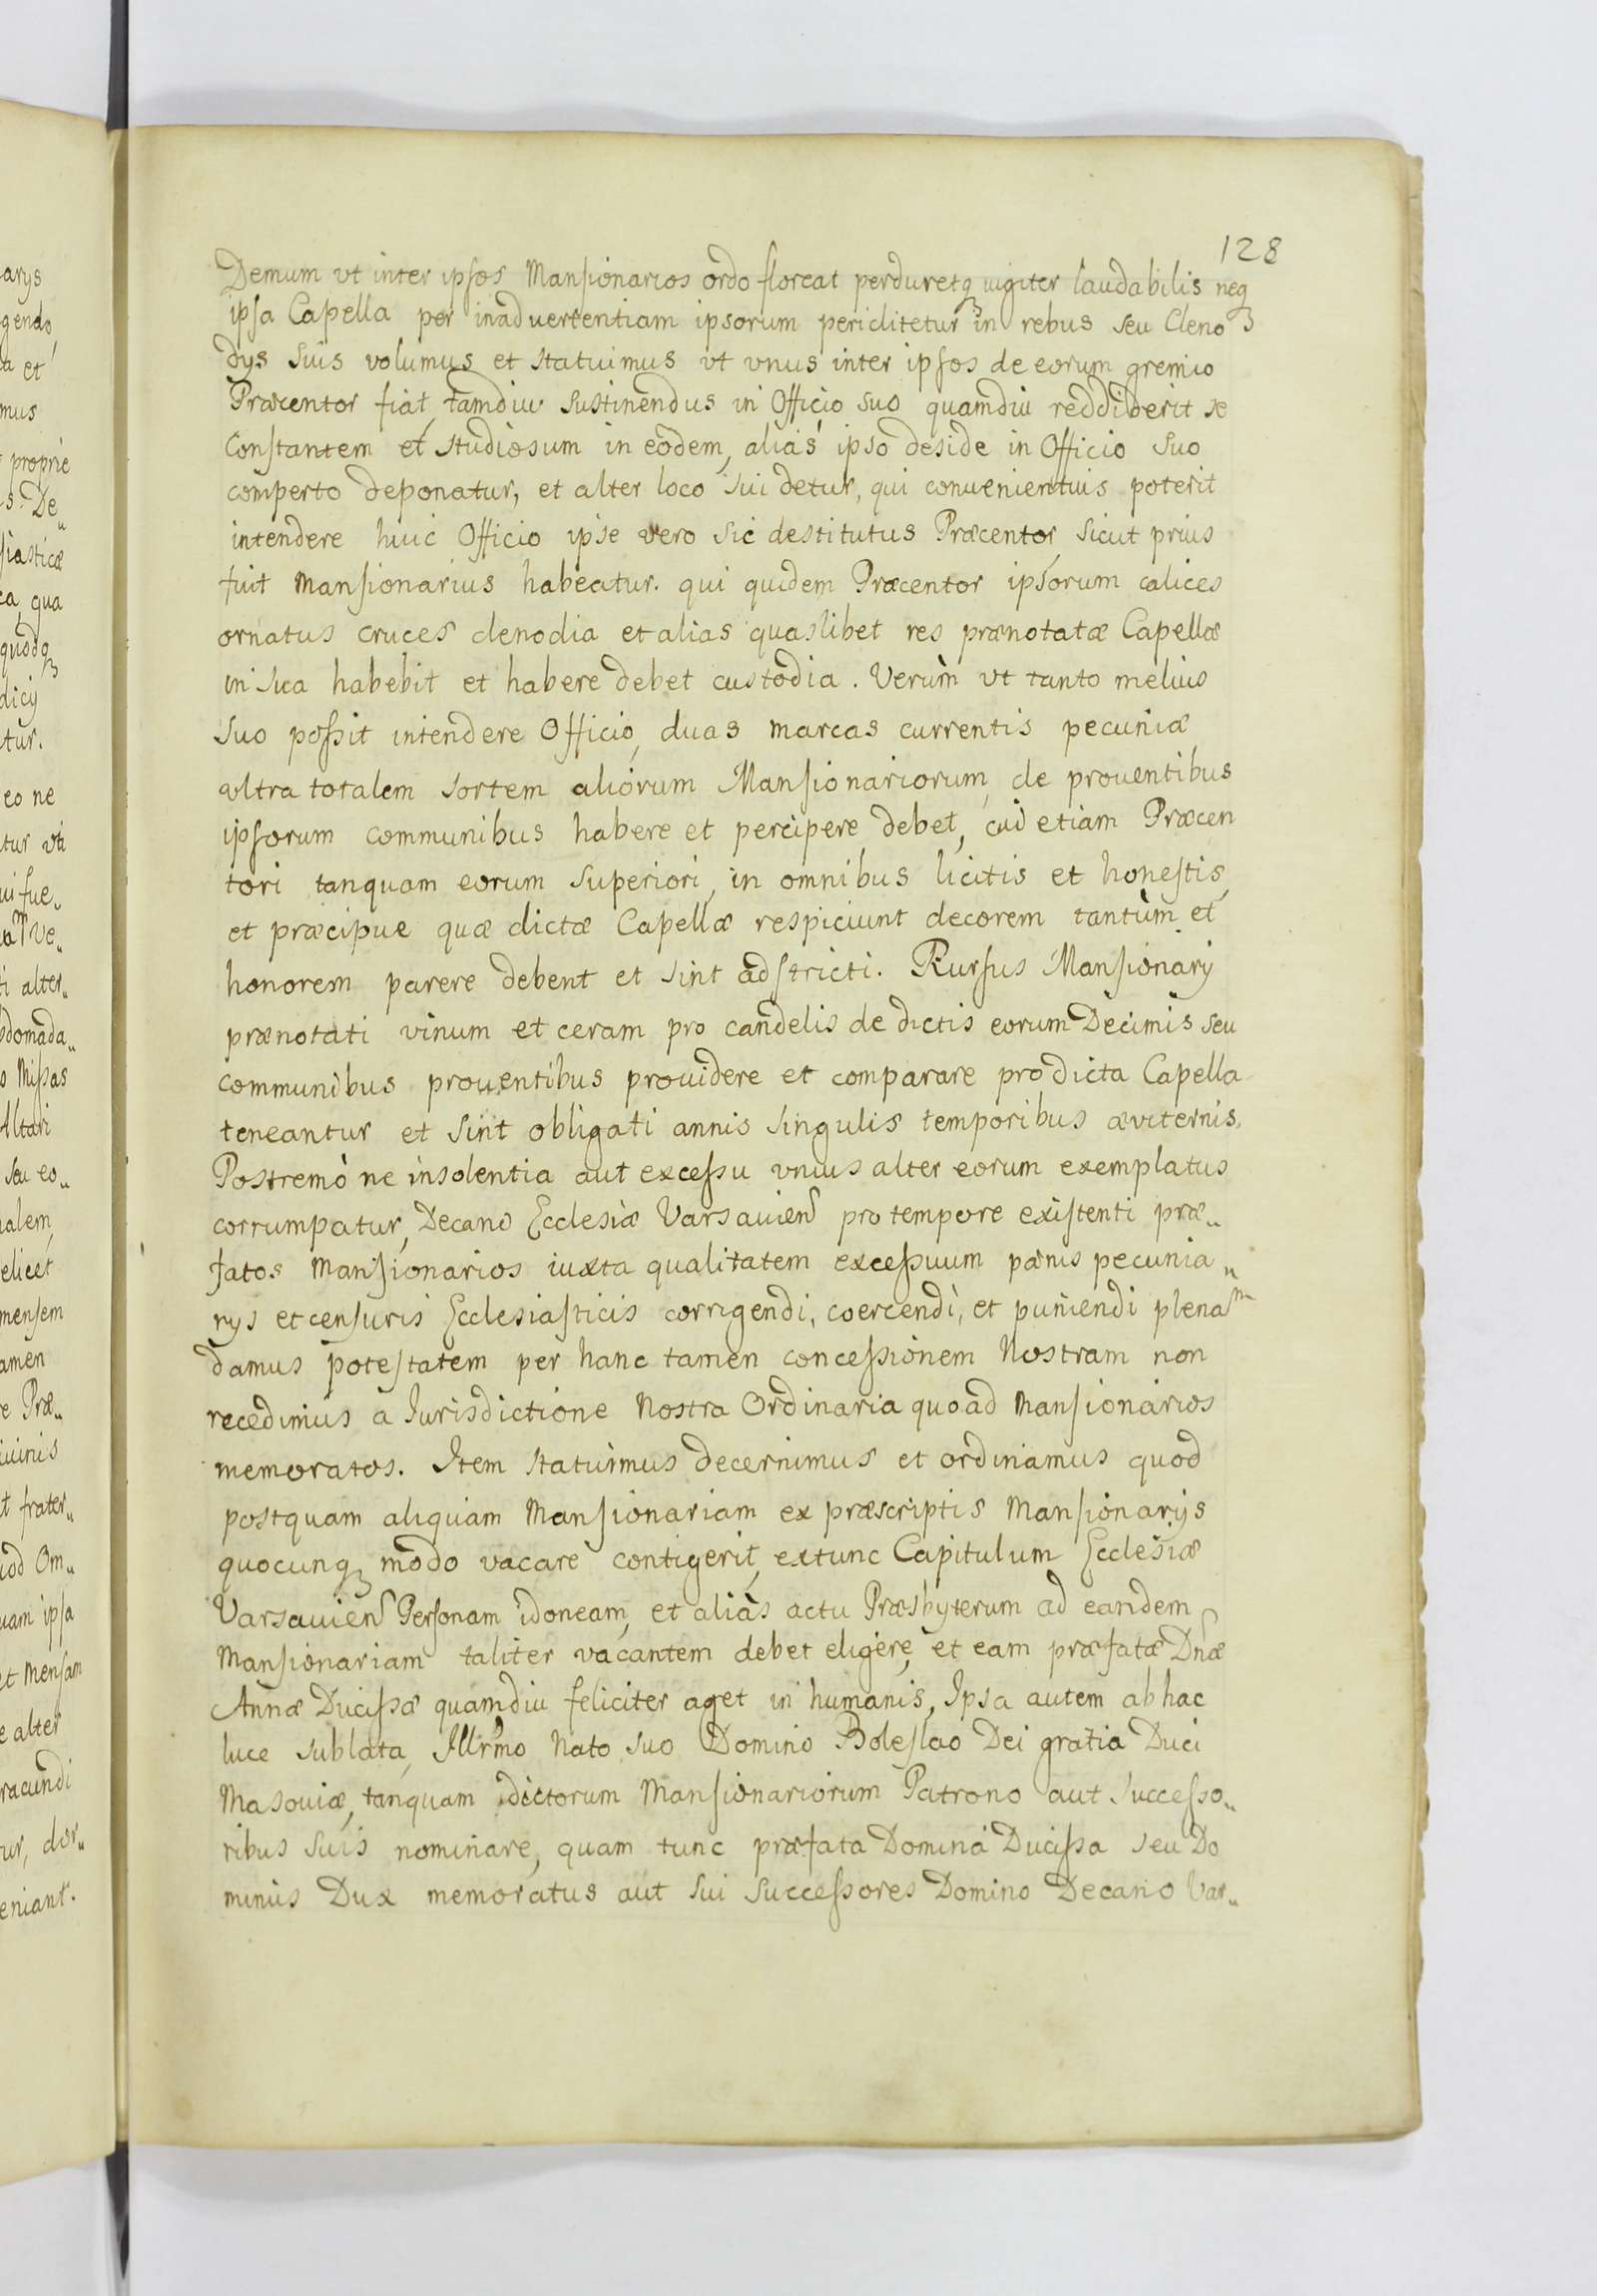 128
Demum vt inter ipsos Mansionarios ordo floreat perduretq3 iugiter laudabilis neq3
ipsa Capella per inaduertentiam ipsorum periclitetur in rebus seu Cleno
dys suis volumus et statuimus vt vnus inter ipsos de eorum gremio
Præcentor fiat, tamdiu sustinendus in Officio suo, quamdiu reddiderit se
Constantem et studiosum in eodem, alias ipso deside in Officio suo
comperto deponatur, et alter loco sui detur, qui conuenientius poterit
intendere huic Officio ipse vero sic destitutus Præcentor, sicut prius
fuit Mansionarius habeatur. qui quidem Præcentor ipsorum calices
ornatus cruces clenodia et alias quaslibet res prænotatæ Capellæ
in sua habebit et habere debet custodia. Verùm vt tanto melius
suo possit intendere Officio, duas marcas currentis pecuniæ
vltra totalem sortem aliorum Mansionariorum, de prouentibus
ipsorum communibus habere et percipere debet, cui etiam Præcen
tori tanquam eorum superiori, in omnibus licitis et honestis,
et præcipue quæ dictæ Capellæ respiciunt decorem tantùm et
honorem parere debent et sint adstricti. Rursus Mansionarij
prænotati vinum et ceram pro candelis de dictis eorum Decimis seu
communibus prouentibus prouidere et comparare pro dicta Capella
teneantur et sint obligati annis singulis temporibus æviternis.
Postremò ne insolentia aut excessu vnius alter eorum exemplatus
corrumpatur, Decano Ecclesiæ Varsauien pro tempore existenti præ„
fatos Mansionarios iuxta qualitatem excessuum pænis pecunia„
rys et censuris Ecclesiasticis corrigendi, coercendi, et puniendi plenam
damus potestatem per hanc tamen concessionem Nostram non
recedimus a Iurisdictione Nostra Ordinaria quoad Mansionarios
memoratos. Item statuimus decernimus et ordinamus quod
postquam aliquam Mansionariam ex præscriptis Mansionarijs
quocunq3 modo vacare contigerit, extunc Capitulum Ecclesiæ
Varsauien Personam idoneam, et aliàs actu Præsbyterum ad eandem
Mansionariam taliter vacantem debet eligere, et eam præfatæ Dnæ
Annæ Ducissæ quamdiu feliciter aget in humanis, Ipsa autem ab hac
luce sublata, Illrmo Nato suo Domino Boleslao Dei gratia Duci
Masouiæ, tanquam dictorum Mansionariorum Patrono aut successo„
ribus suis nominare, quam tunc præfata Domina Ducissa seu Do
minus Dux memoratus aut sui successores Domino Decano Var„